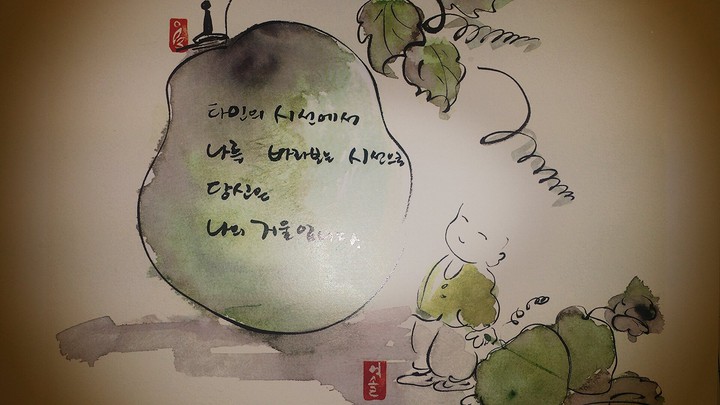 타인의 시선에서
나를 바라보는 시선으로
당신은
나의 거울입니다.